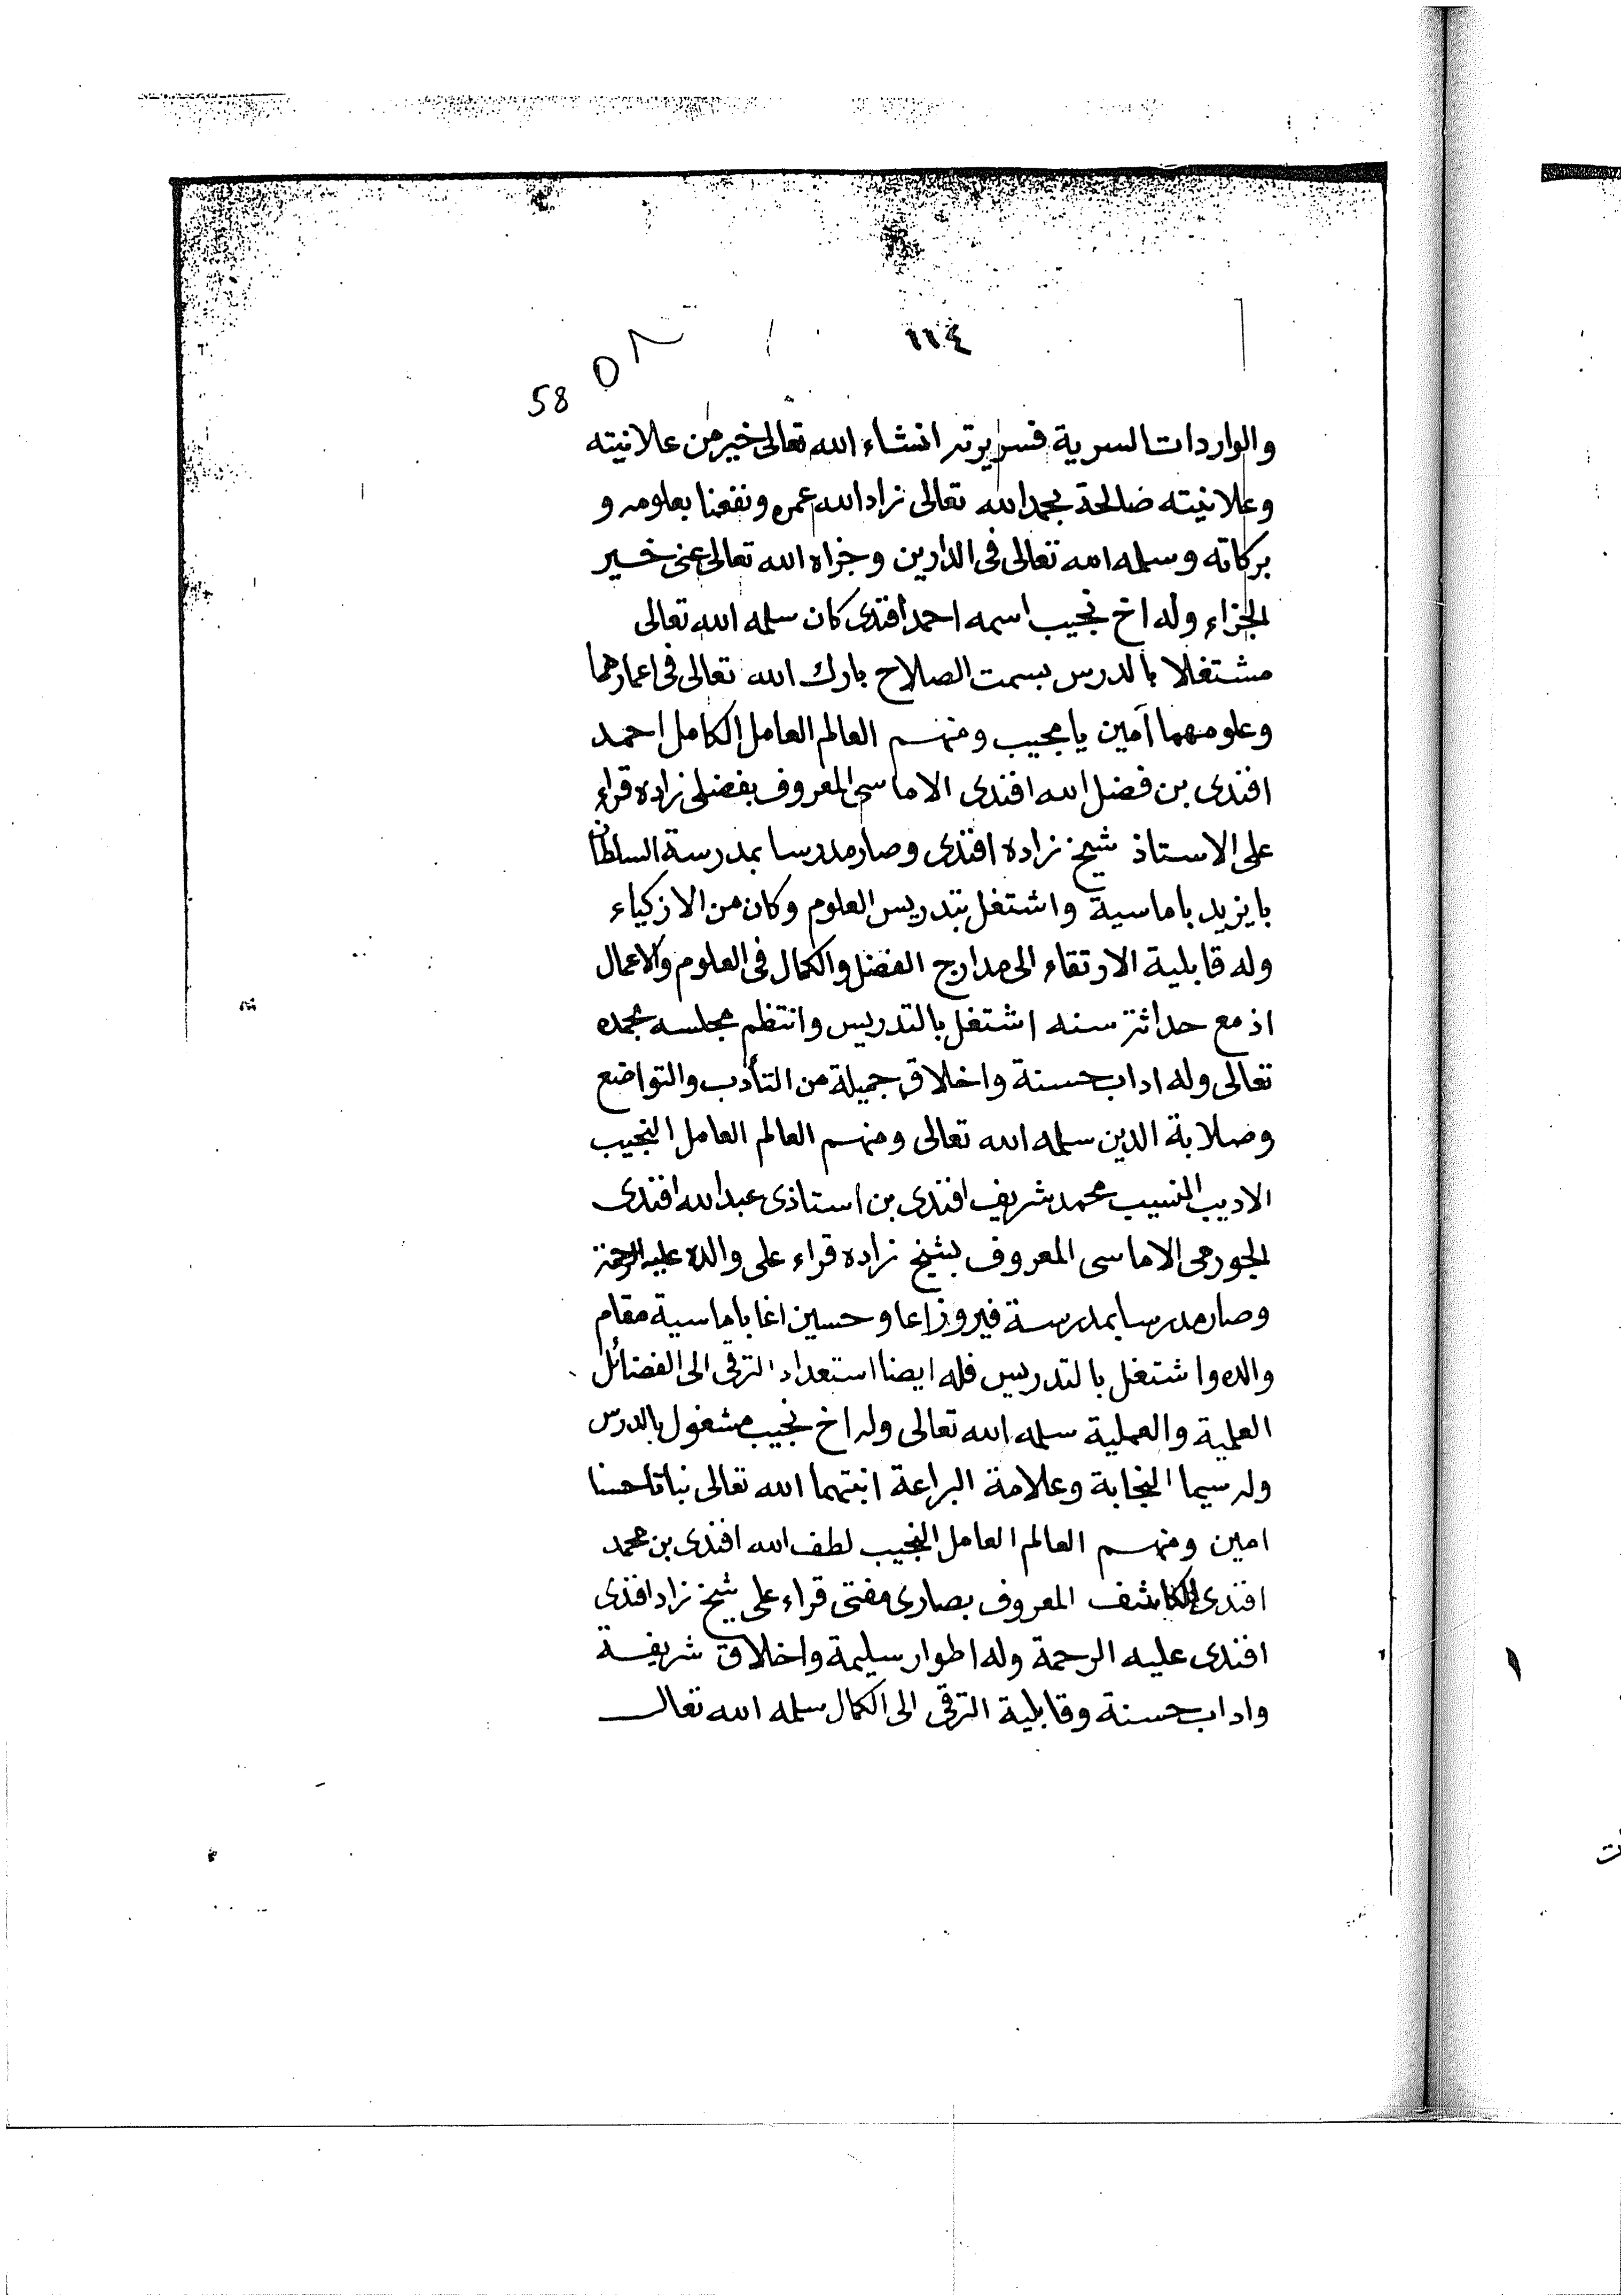 ١١٤
٥٨
58
والواردات السرية فسريرته انشاء الله تعالى خير من علانيته
وعلانيته صالحة بحمد الله تعالى زاد الله عمره ونفعنا بعلومه و
بركاته وسلمه الله تعالى فى الدارين وجزاه الله تعالى عنى خير
الجزاء وله اخ نجيب اسمه احمد افندى كان سلمه الله تعالى
مشتغلا بالدرس بسمت الصلاح بارك الله تعالى فى اعمارهما
وعلومهما آمين يا مجيب ومنهم العالم العامل الكامل احمد
افندى بن فضل الله افندى الاماسى المعروف بفضلى زاده قراء
على الاستاذ شيخ زاده افندى وصار مدرسا بمدرسة السلطان
بايزيد باماسية واشتغل بتدريس العلوم وكان من الازكياء
وله قابلية الارتقاء الى مدارج الفضل والكمال فى العلوم والاعمال
اذ مع حداثة سنه اشتغل بالتدريس وانتظم مجلسه بحمده
تعالى وله اداب حسنة واخلاق جميلة من التأدب والتواضع
وصلابة الدين سلمه الله تعالى ومنهم العالم العامل النجيب
الاديب النسيب محمد شريف افندى بن استاذى عبد الله افندى
الجورمى الاماسى المعروف بشيخ زاده قراء على والده عليه الرحمة
وصار مدرسا بمدرسة فيروز اغا وحسين اغا باماسية مقام
والده واشتغل بالتدريس فله ايضا استعداد الترقى الى الفضائل
العلمية والعملية سلمه الله تعالى وله اخ نجيب مشغول بالدرس
وله سيما النجابة وعلامة البراعة انبتهما الله تعالى نباتا حسنا
امين ومنهم العالم العامل النجيب لطف الله افندى بن محمد
افندى الكاشف المعروف بصارى مفتى قراء على شيخ زاد افندى
افندى عليه الرحمة وله اطوار سليمة واخلاق شريفة
واداب حسنة وقابلية الترقى الى الكمال سلمه الله تعالى